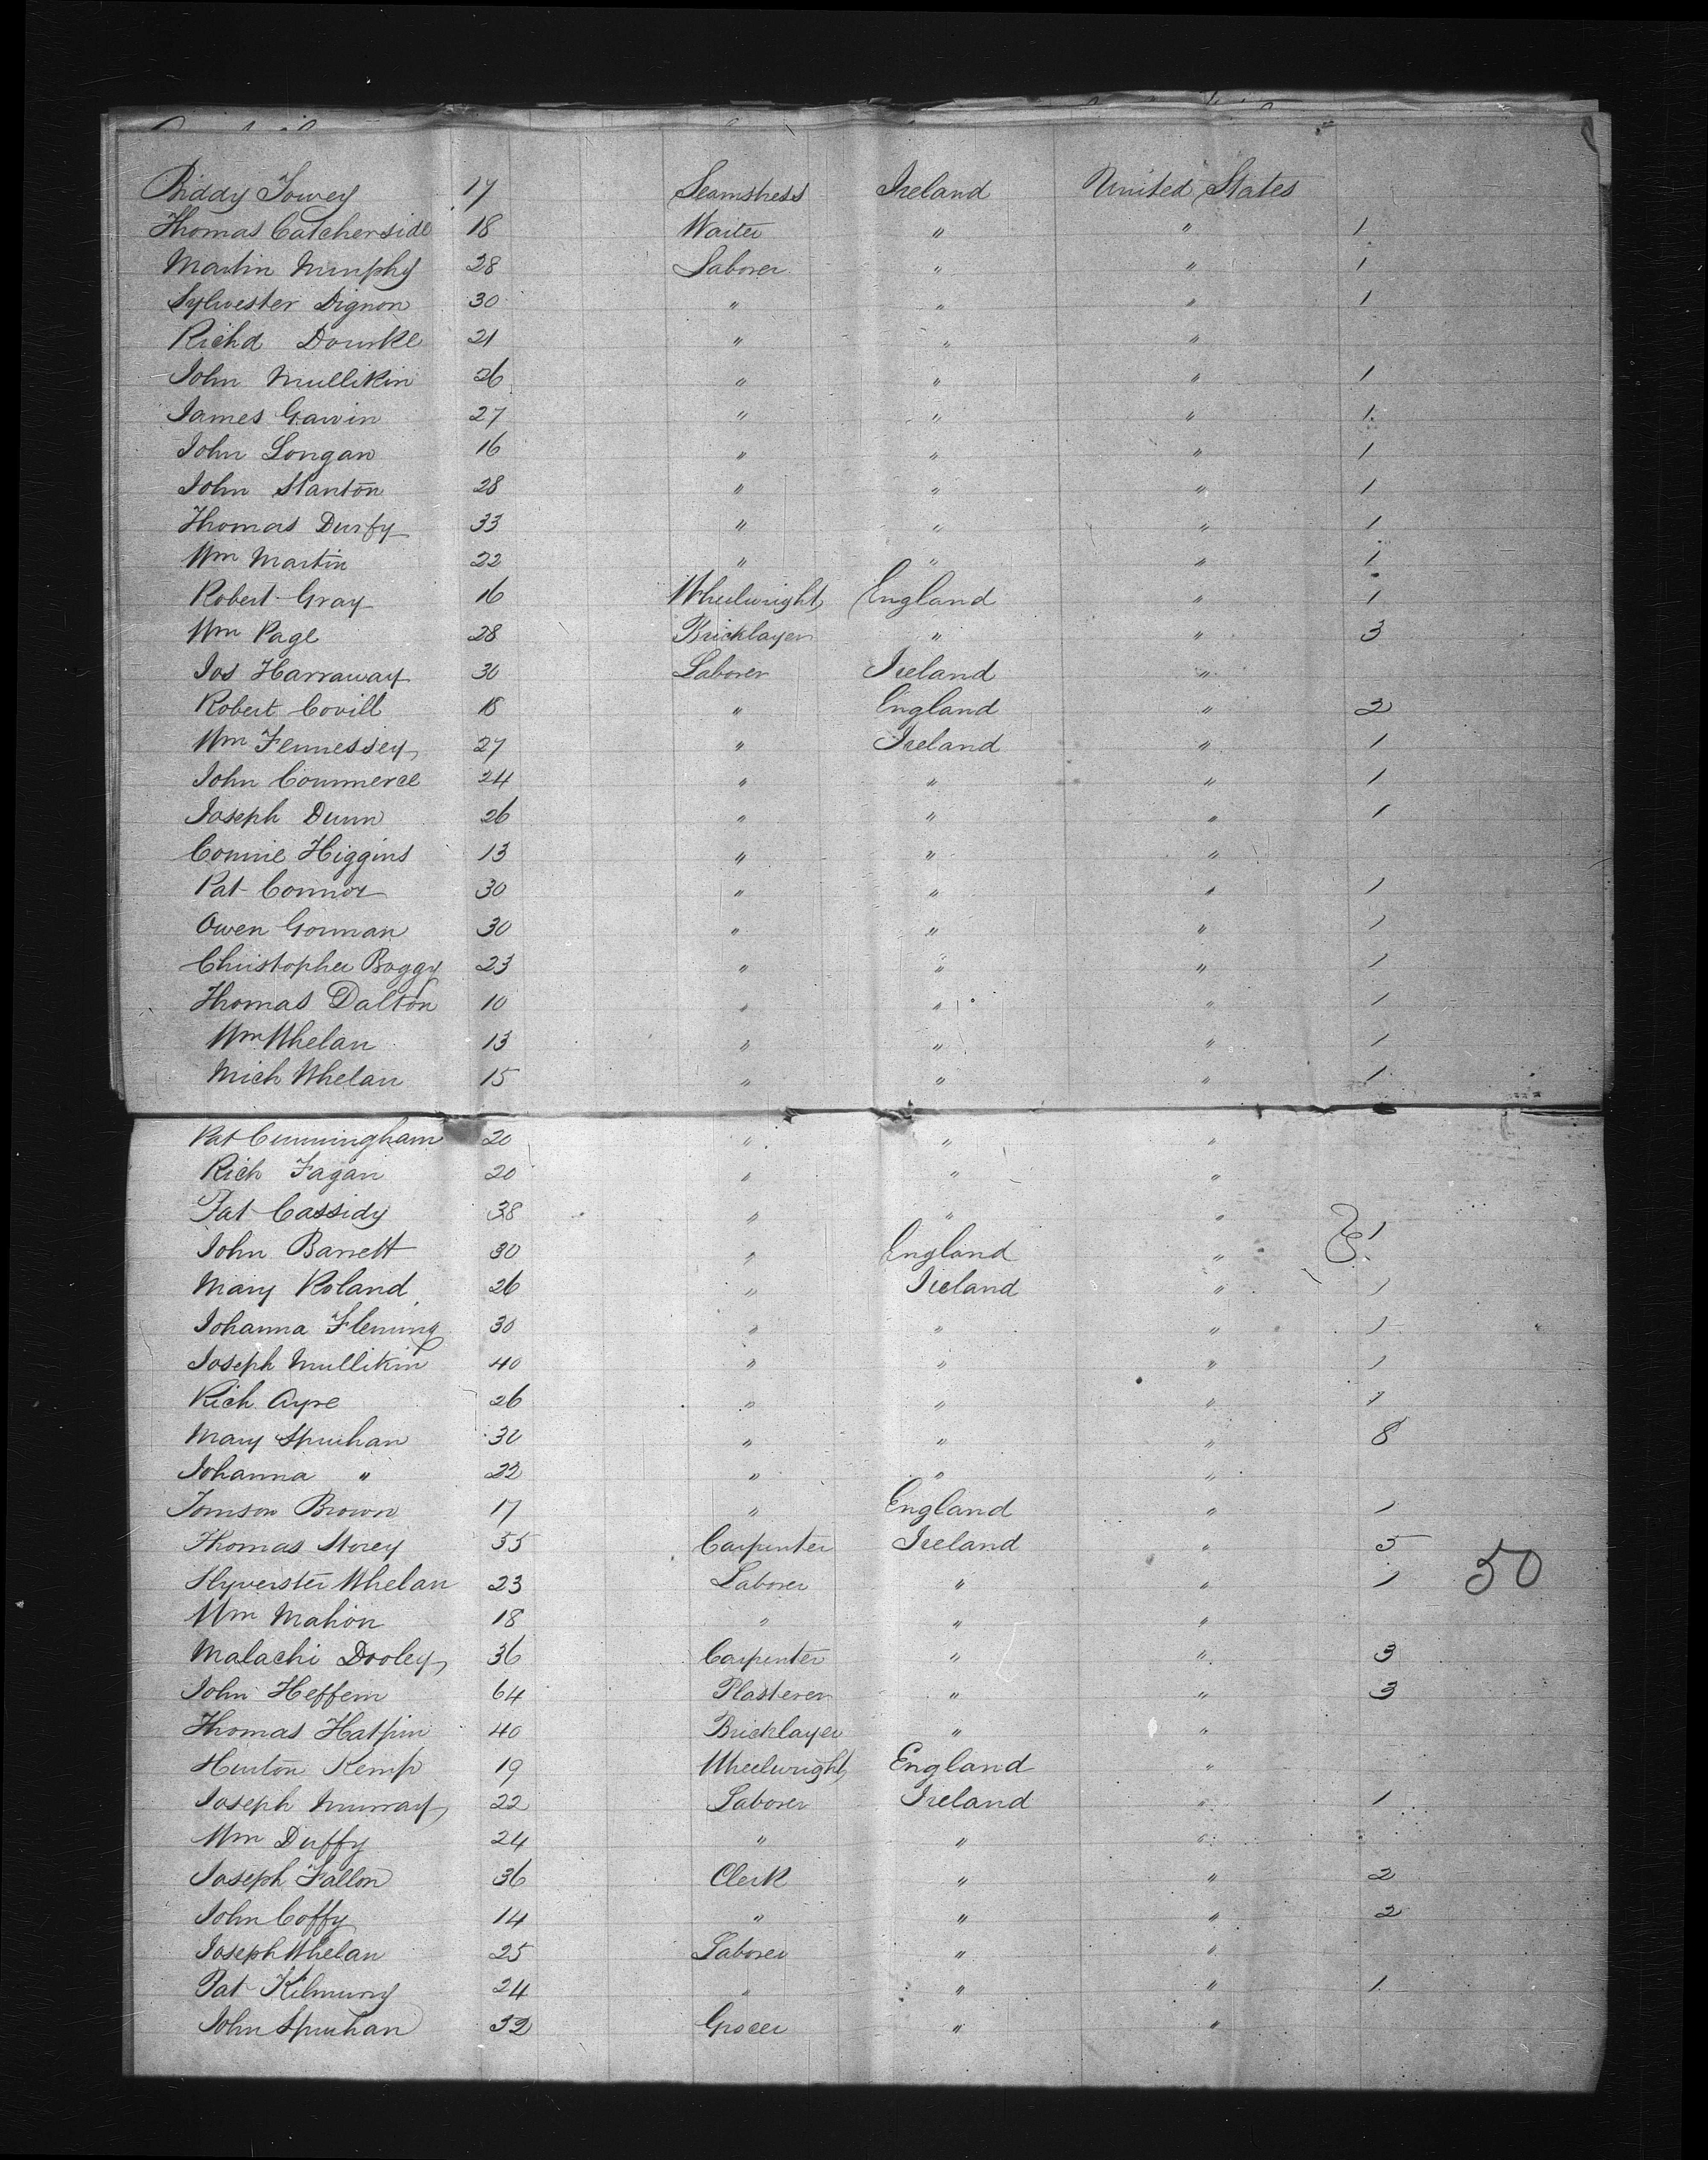 Biddy Towey 17 Seamstress Ireland United States
Thomas Catcherside 18 Waiter " " 1
Martin Murphy 28 Laborer " " 1
Sylvester Dignon 30 " " " 1
Richd Dourke 21 " " "
John Mullikin 26 " " " 1
James Gavin 27 " " " 1
John Longan 16 " " " 1
John Stanton 28 " " " 1
Thomas Durfy 33 " " " 1
Wm Martin 22 " " " 1
Robert Gray 16 Wheelwright England " 1
Wm Page 28 Bricklayer " " 3
Jos Harraway 30 Laborer Ireland "
Robert Covill 18 " England " 2
Wm Fennessey 27 " Ireland " 1
John Commerce 24 " " " 1
Joseph Dunn 26 " " " 1
Connie Higgins 13 " " "
Pat Connor 30 " " " 1
Owen Gorman 30 " " " 1
Christopher Boggy 23 " " " 1
Thomas Dalton 10 " " " 1
Wm Whelan 13 " " " 1
Mich Whelan 15 " " " 1
Pat Cunningham 20 " " "
Rich Fagan 20 " " "
Pat Cassidy 38 " " " 1
John Barrett 30 " England "
Mary Roland 26 " Ireland " 1
Johanna Fleming 30 " " " 1
Joseph Mullikin 40 " " " 1
Rich Ayre 26 " " " 1
Mary Spruhan 30 " " " 8
Johanna " 22 " " "
Tomson Brown 17 " England " 1
Thomas Storey 55 Carpenter Ireland " 5
Slyverster Whelan 23 Laborer " " 1 50
Wm Mahon 18 " " "
Malachi Dooley 36 Carpenter " " 3
John Heffern 64 Plasterer " " 3
Thomas Hatpin 40 Bricklayer " "
Hinton Kemp 19 Wheelwright England "
Joseph Murray 22 Laborer Ireland " 1
Wm Duffy 24 " " "
Joseph Fallon 36 Clerk " " 2
John Coffy 14 " " " 2
Joseph Whelan 25 Laborer " "
Pat Kilmurry 24 " " " 1
John Spruhan 32 Grocer " "